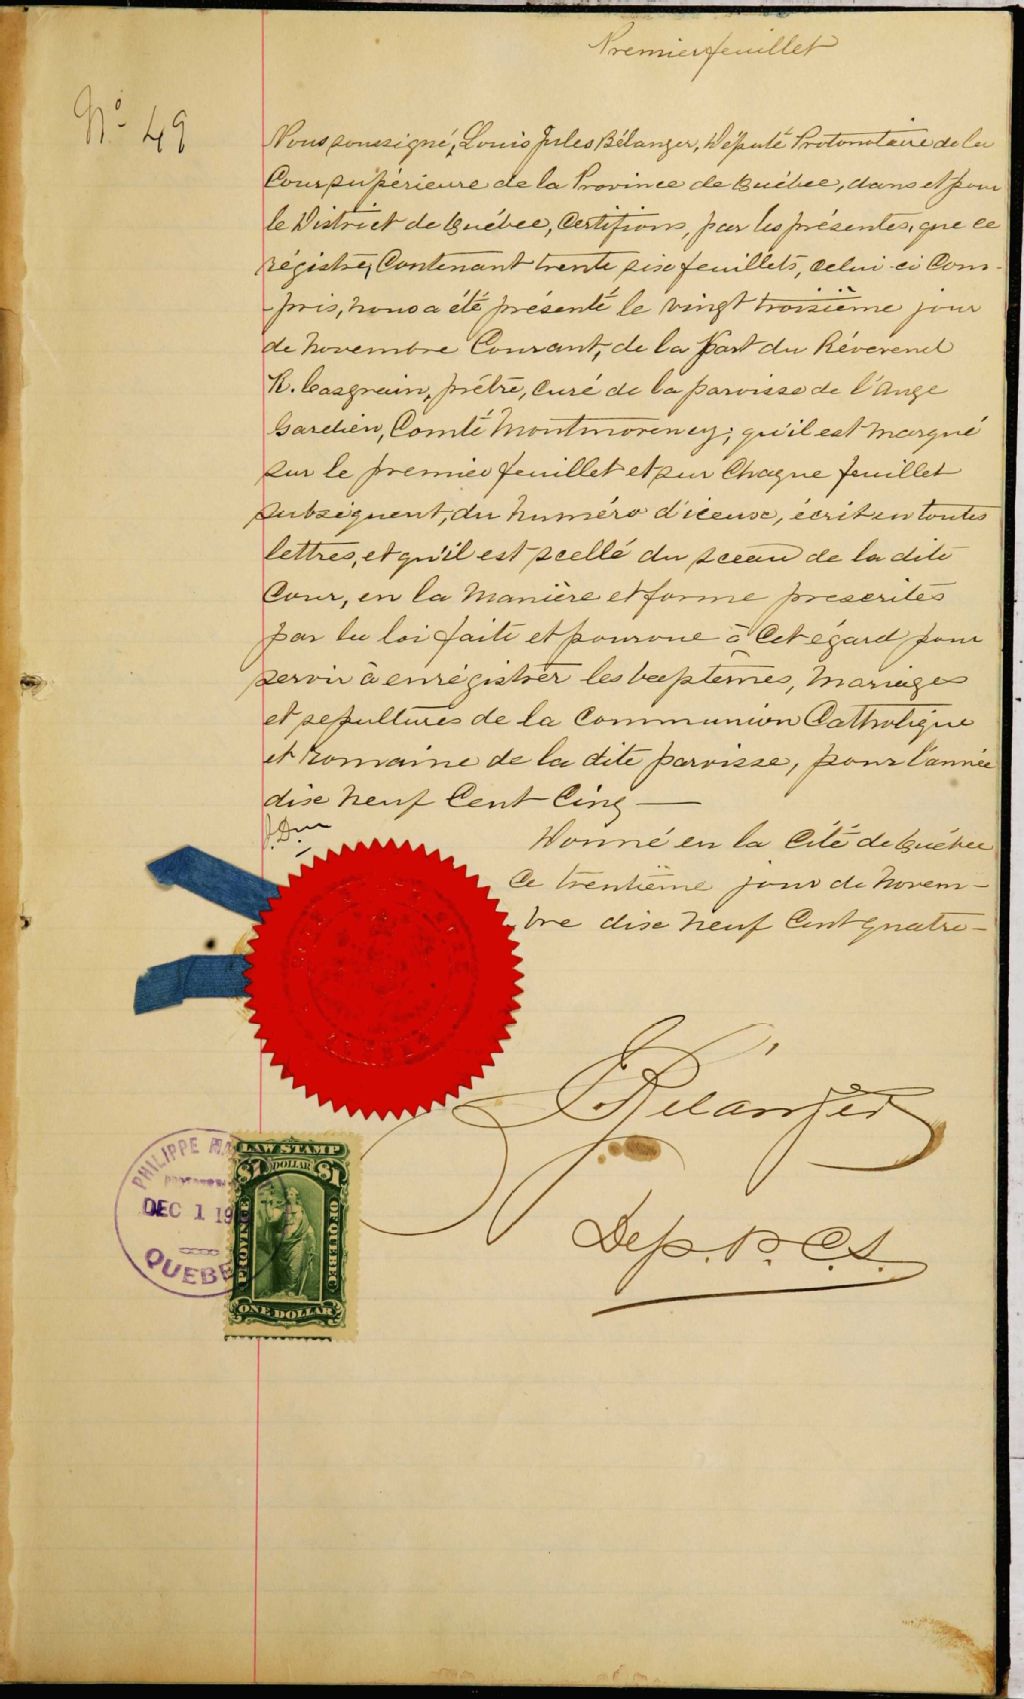 Premier feuillet
No. 49
Nous soussigné, Louis Jules Bélanger, Député Protonotaire de la
Cour supérieure de la Province de Québec, dans et pour
le District de Québec, Certifions, par les présentes, que ce
régistre, Contenant trente six feuillets, celui-ci Com-
-pris, nous a été présenté le vingt troisième jour
de Novembre Courant, de la Part du Révérend
R. Casgrain, prêtre, curé de la paroisse de l'Ange
Gardien, Comté Montmorency; qu'il est marqué
sur le premier feuillet et sur Chaque feuillet
subséquent, du Numéro d'iceux, écrit en toutes
lettres, et qu'il est scellé du sceau de la dite
Cour, en la Manière et forme prescrites
par la loi faite et pourvue à Cet égard pour
servir à enrégistrer les baptêmes, Mariages
et sépultures de la Communion Catholique
et romaine de la dite paroisse, pour l'année
dix Neuf Cent Cinq —
Donné en la Cité de Québec
Ce trentième jour de Novem-
bre dix Neuf Cent quatre-
Bélanger
Dep. P. C. S.
LAW STAMP
$1 DOLLAR $1
PROVINCE OF QUEBEC
ONE DOLLAR
PHILIPPE
DEC 1 19
QUEBE